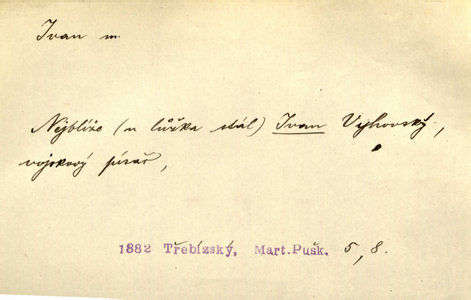 Ivan m.
Nejblíže (u lůžka stál) Ivan Vyhovský,
vojskový písař,
1882 Třebízský, Mart.Pušk. 5, 8.